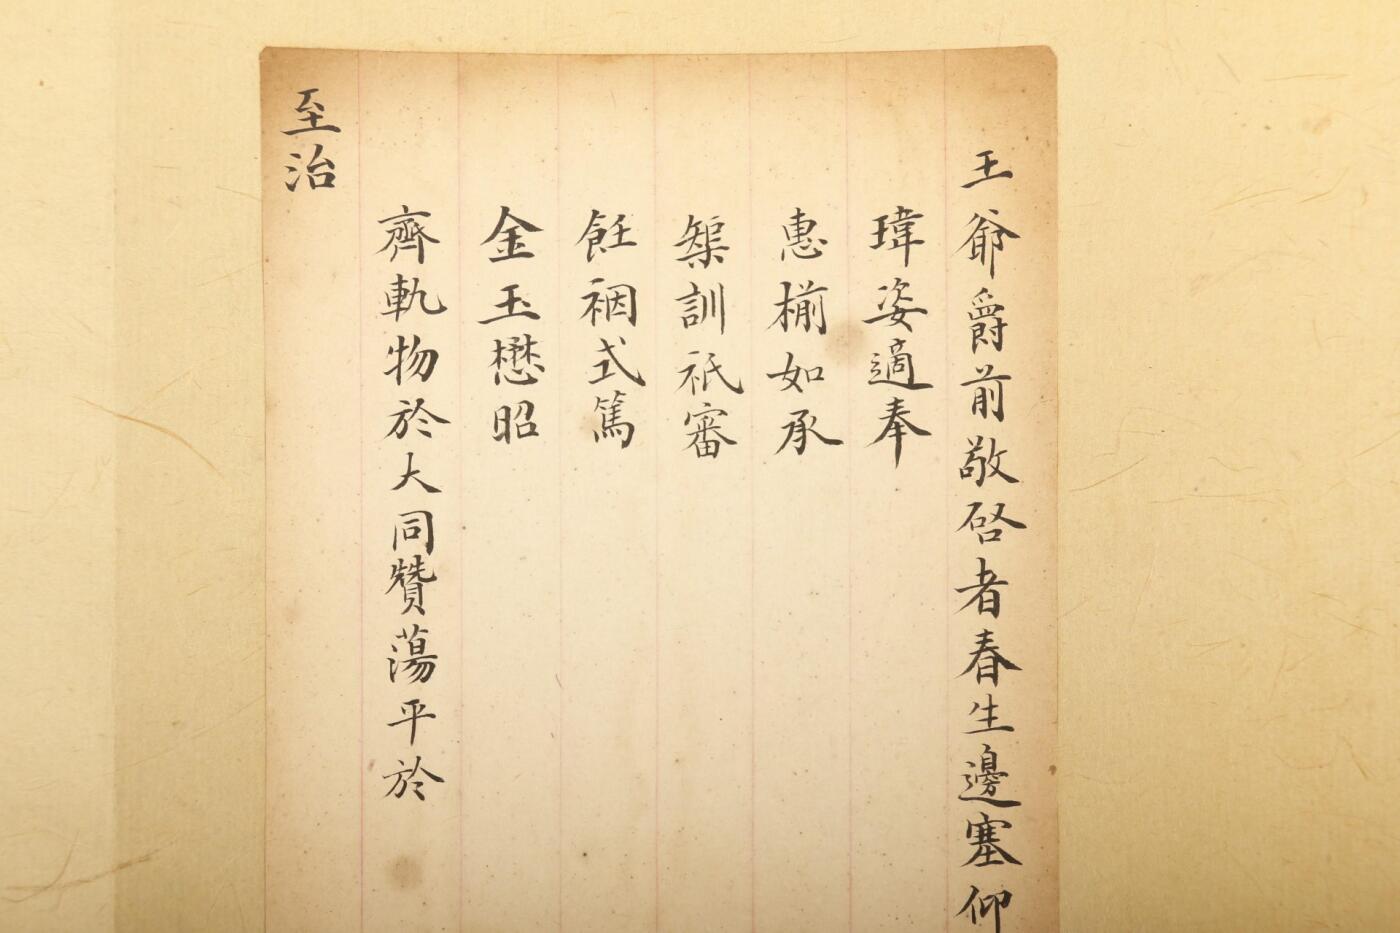 王爺爵前敬啓者春生邊塞仰
瑋姿適奉
惠椾如承
榘訓祇審
飪裀式篤
金玉懋昭
齊軌物於大同贊蕩平於
至治